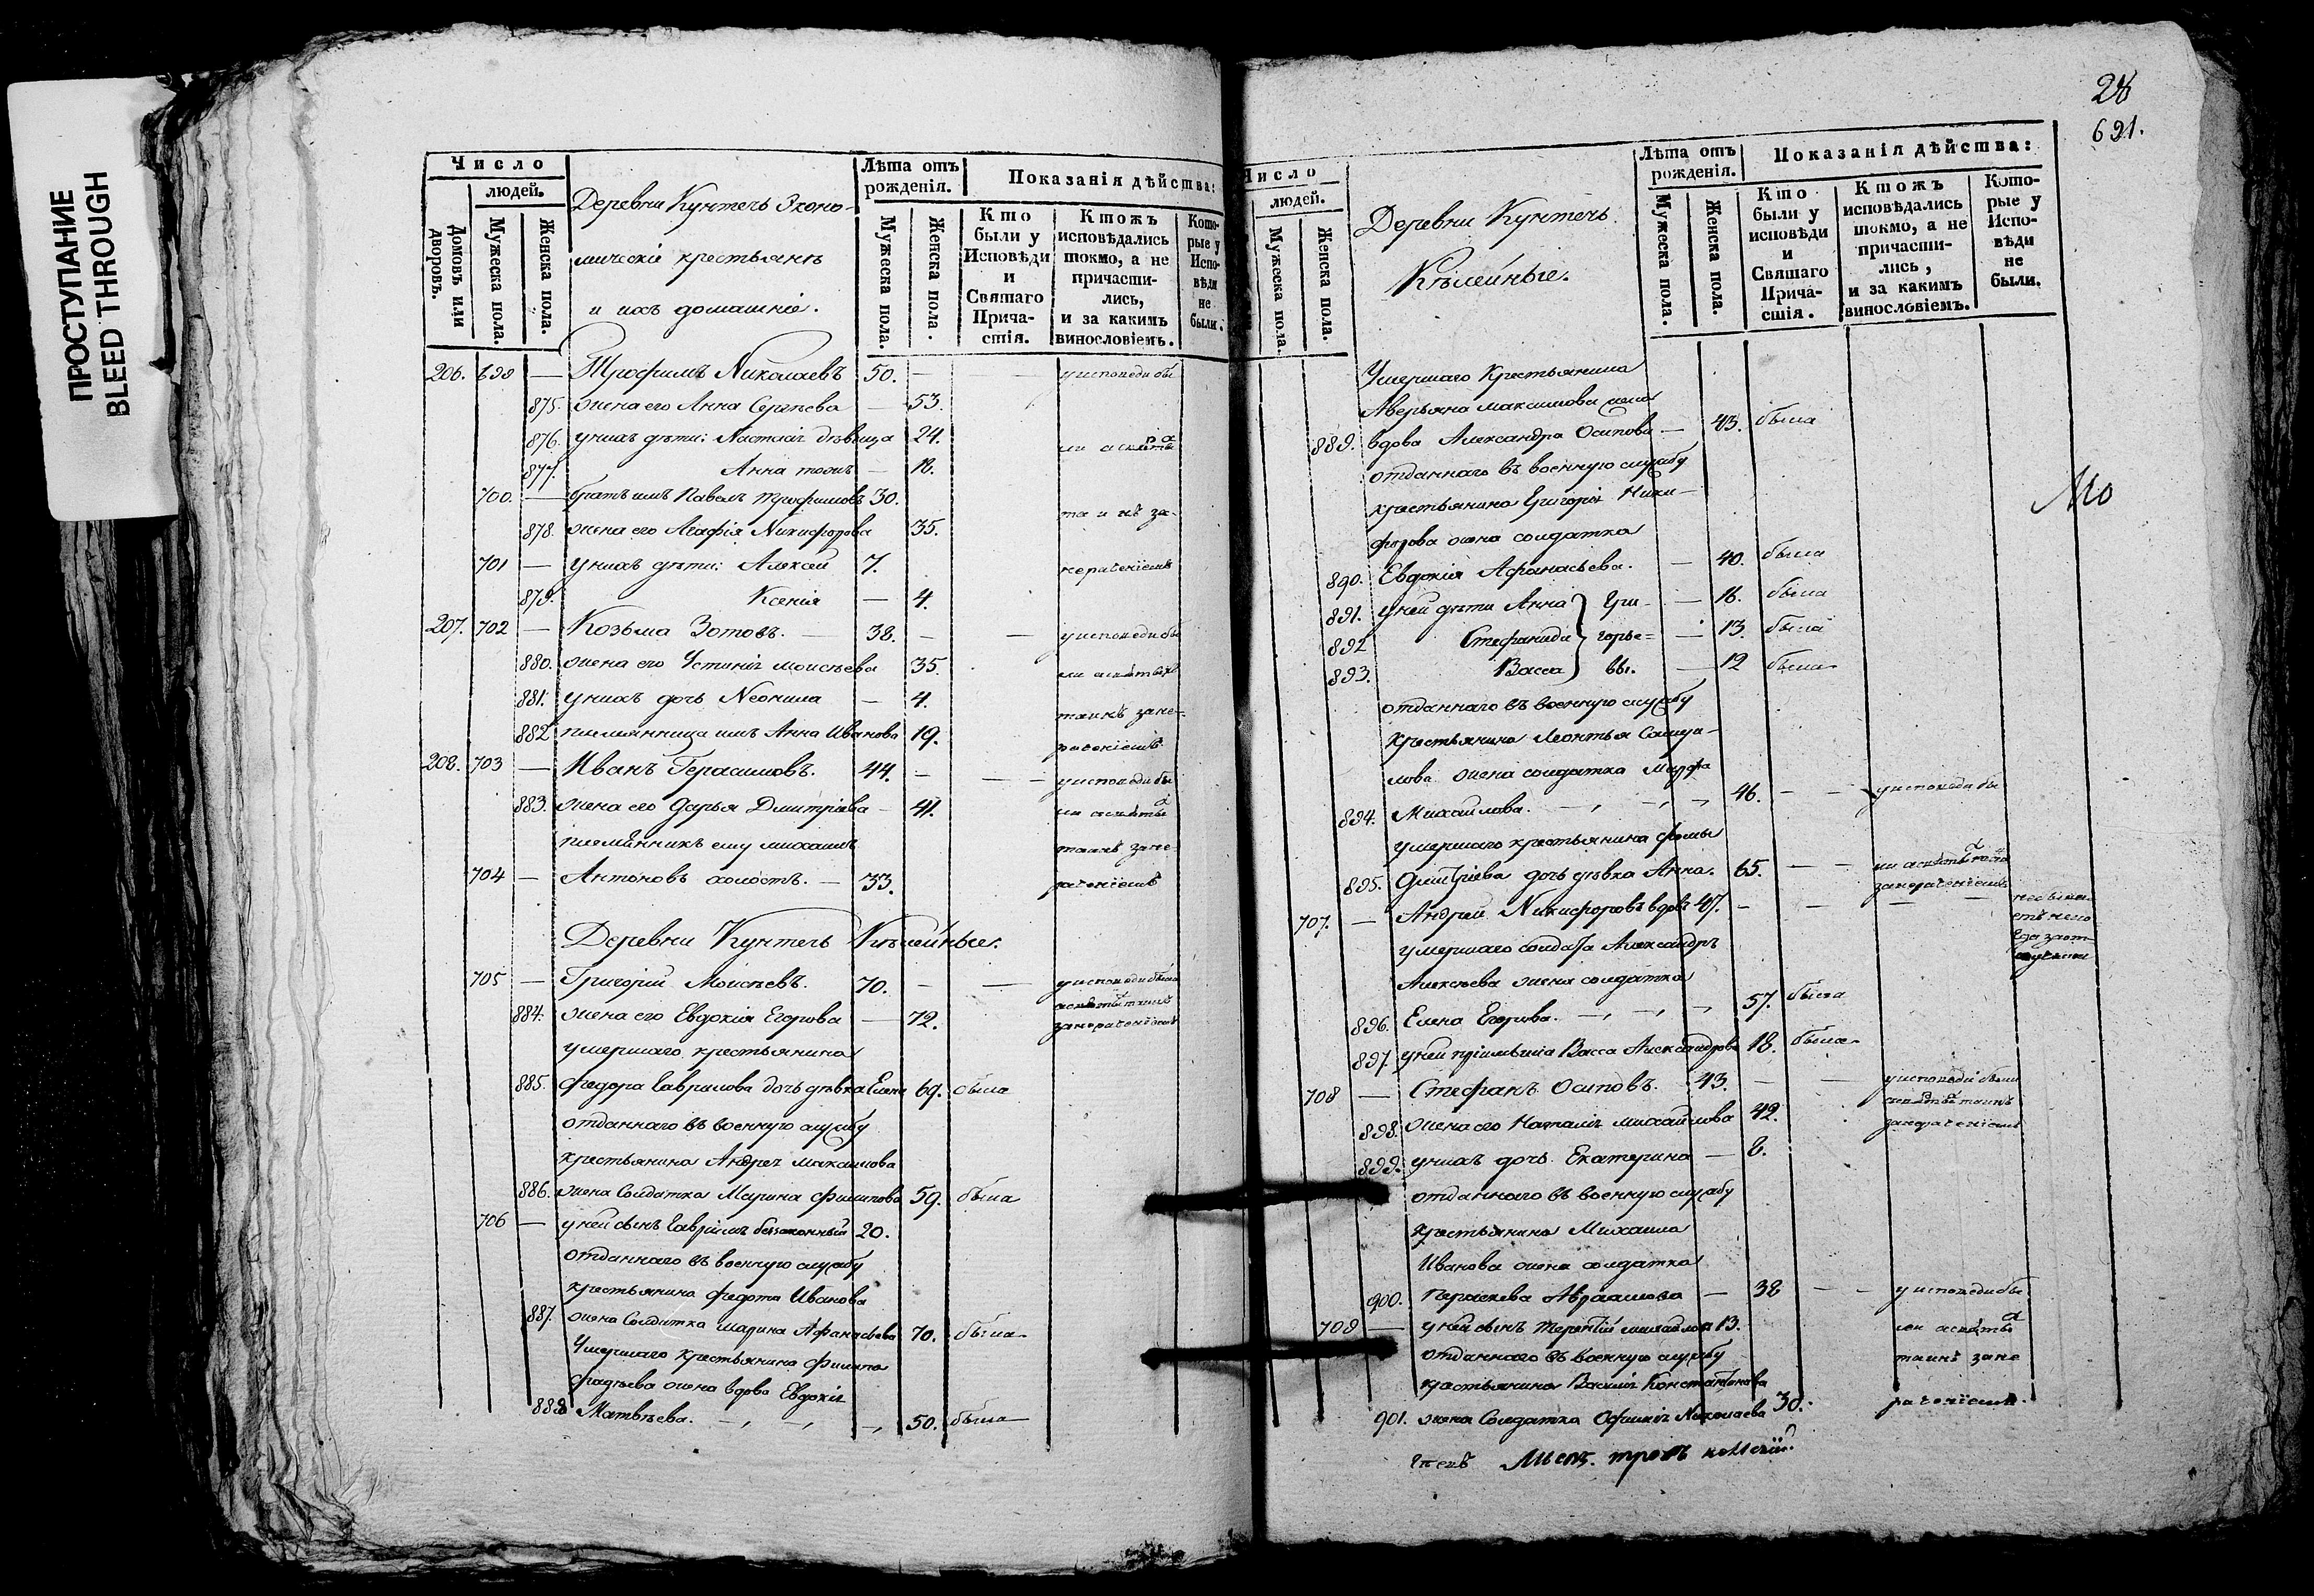 ПРОСТУПАНИЕ
BLEED THROUGH
Число
людей.
Домовъ или дворовъ.
Мужеска пола.
Женска пола.
Деревни Кунтечь Эконо-
мическіе крестьяне
и ихъ домашніе.
Лѣта отъ рожденія.
Мужеска пола.
Женска пола.
Показанія дѣйства:
Кто были у Исповѣди и Святаго Прича-стія.
Ктожъ исповѣдались токмо, а не причасти-лись, и за какимъ винословіемъ.
Кото-рые у Испо-вѣди не были.
206. 699 — Трофимъ Николаевъ 50. — — у исповеди бы
875. жена его Анна Сергѣева — 53.
876. у нихъ дѣти: Настасія дѣвица 24.
877. Анна тожъ — 18.
700. — братъ имъ Павелъ Трофимовъ 30. та и нъ за-
878. жена его Агафія Никифорова 35.
701 — у нихъ дѣти: Алексѣй 7. нераченіемъ
879. Ксенія — 4.
207. 702 — Козьма Зотовъ. — 38. — — у исповеди бы
880. жена его Устинія Моисѣева 35.
881. у нихъ дочь Неонила — 4. таинъ зане-
882 племянница имъ Анна Иванова 19. раченіемъ
208. 703 — Иванъ Герасимовъ. 44. — — — у исповеди бы
883. жена его Дарья Дмитріева — 41.
племянникъ ему Михаилъ таинъ зане-
704 — Антоновъ холостъ. — 33. раченіемъ
Деревни Кунтечь Кѣлейные.
705 — Григорій Моисѣевъ. 70. — — у исповеди были
884. жена его Евдокія Егорова — 72. занераченіемъ
умершаго крестьянина
885. Федора Гаврилова дочь дѣвка Елена 69. была
отданнаго въ военную службу
крестьянина Андрея Максимова
886. жена Солдатка Марина Филипова 59. была
706 — у ней сынъ Гавріилъ беззаконный 20.
отданнаго въ военную службу
крестьянина Федота Иванова
887. жена Солдатка Марина Афанасьева 70. была
Умершаго крестьянина Филипа
Фадѣева жена вдова Евдокія
888 Матвѣева. — — — 50. была
28
691.
Число
людей.
Мужеска пола.
Женска пола.
Деревни Кунтечь.
Кѣлейные.
Лѣта отъ рожденія.
Мужеска пола.
Женска пола.
Показанія дѣйства:
Кто были у исповѣди и Святаго Прича-стія.
Ктожъ исповѣдались токмо, а не причасти-лись, и за какимъ винословіемъ.
Кото-рые у Испо-вѣди не были.
Умершаго Крестьянина
Аверьяна Максимова жена
889. вдова Александра Осипова — 43. была
отданнаго въ военную службу
крестьянина Григорія Ники-
форова жена солдатка
890. Евдокія Афанасьева. — 40. была
891. у ней дѣти Анна Гри- — 16. была
892 Стефанида горье= — 13. была
893. Васса вы. — 12 была
отданнаго въ военную службу
крестьянина Леонтья Самуй-
лова жена солдатка Марфа
894. Михайлова. — — — 46. — — у исповеди бы
умершаго крестьянина Фомы
895. Дмитріева дочь дѣвка Анна. 65. — — занераченіемъ
707. — Андрей Никифоровъ вдовъ 47. — — — —
умершаго солдата Александръ
Алексѣева жена солдатка
896. Елена Егорова. — — — 57. была
897. у ней пріимышъ Васса Александрова 18. была
708 — Стефанъ Осиповъ. 43. — — у исповеди были
898. жена его Наталія Михайлова 42. занераченіемъ
899. у нихъ дочь Екатерина — 8.
отданнаго въ военную службу
крестьянина Михаила
Иванова жена солдатка
900. Параскева Авраамова — 38 — — у исповеди бы
709 — у ней сынъ Терентій Михайловъ 13.
отданнаго въ военную службу таинъ зане
крестьянина Василія Константинова
901. жена Солдатка Офимія Николаева 30. раченіемъ.
Мо